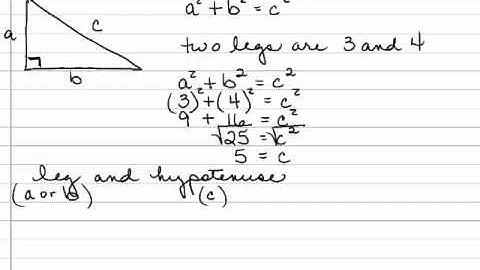 a² + b² = c²
a
c
b
two legs are 3 and 4
a² + b² = c²
(3)² + (4)² = c²
9 + 16 = c²
√25 = √c²
5 = c
leg and hypotenuse
(a or b) (c)